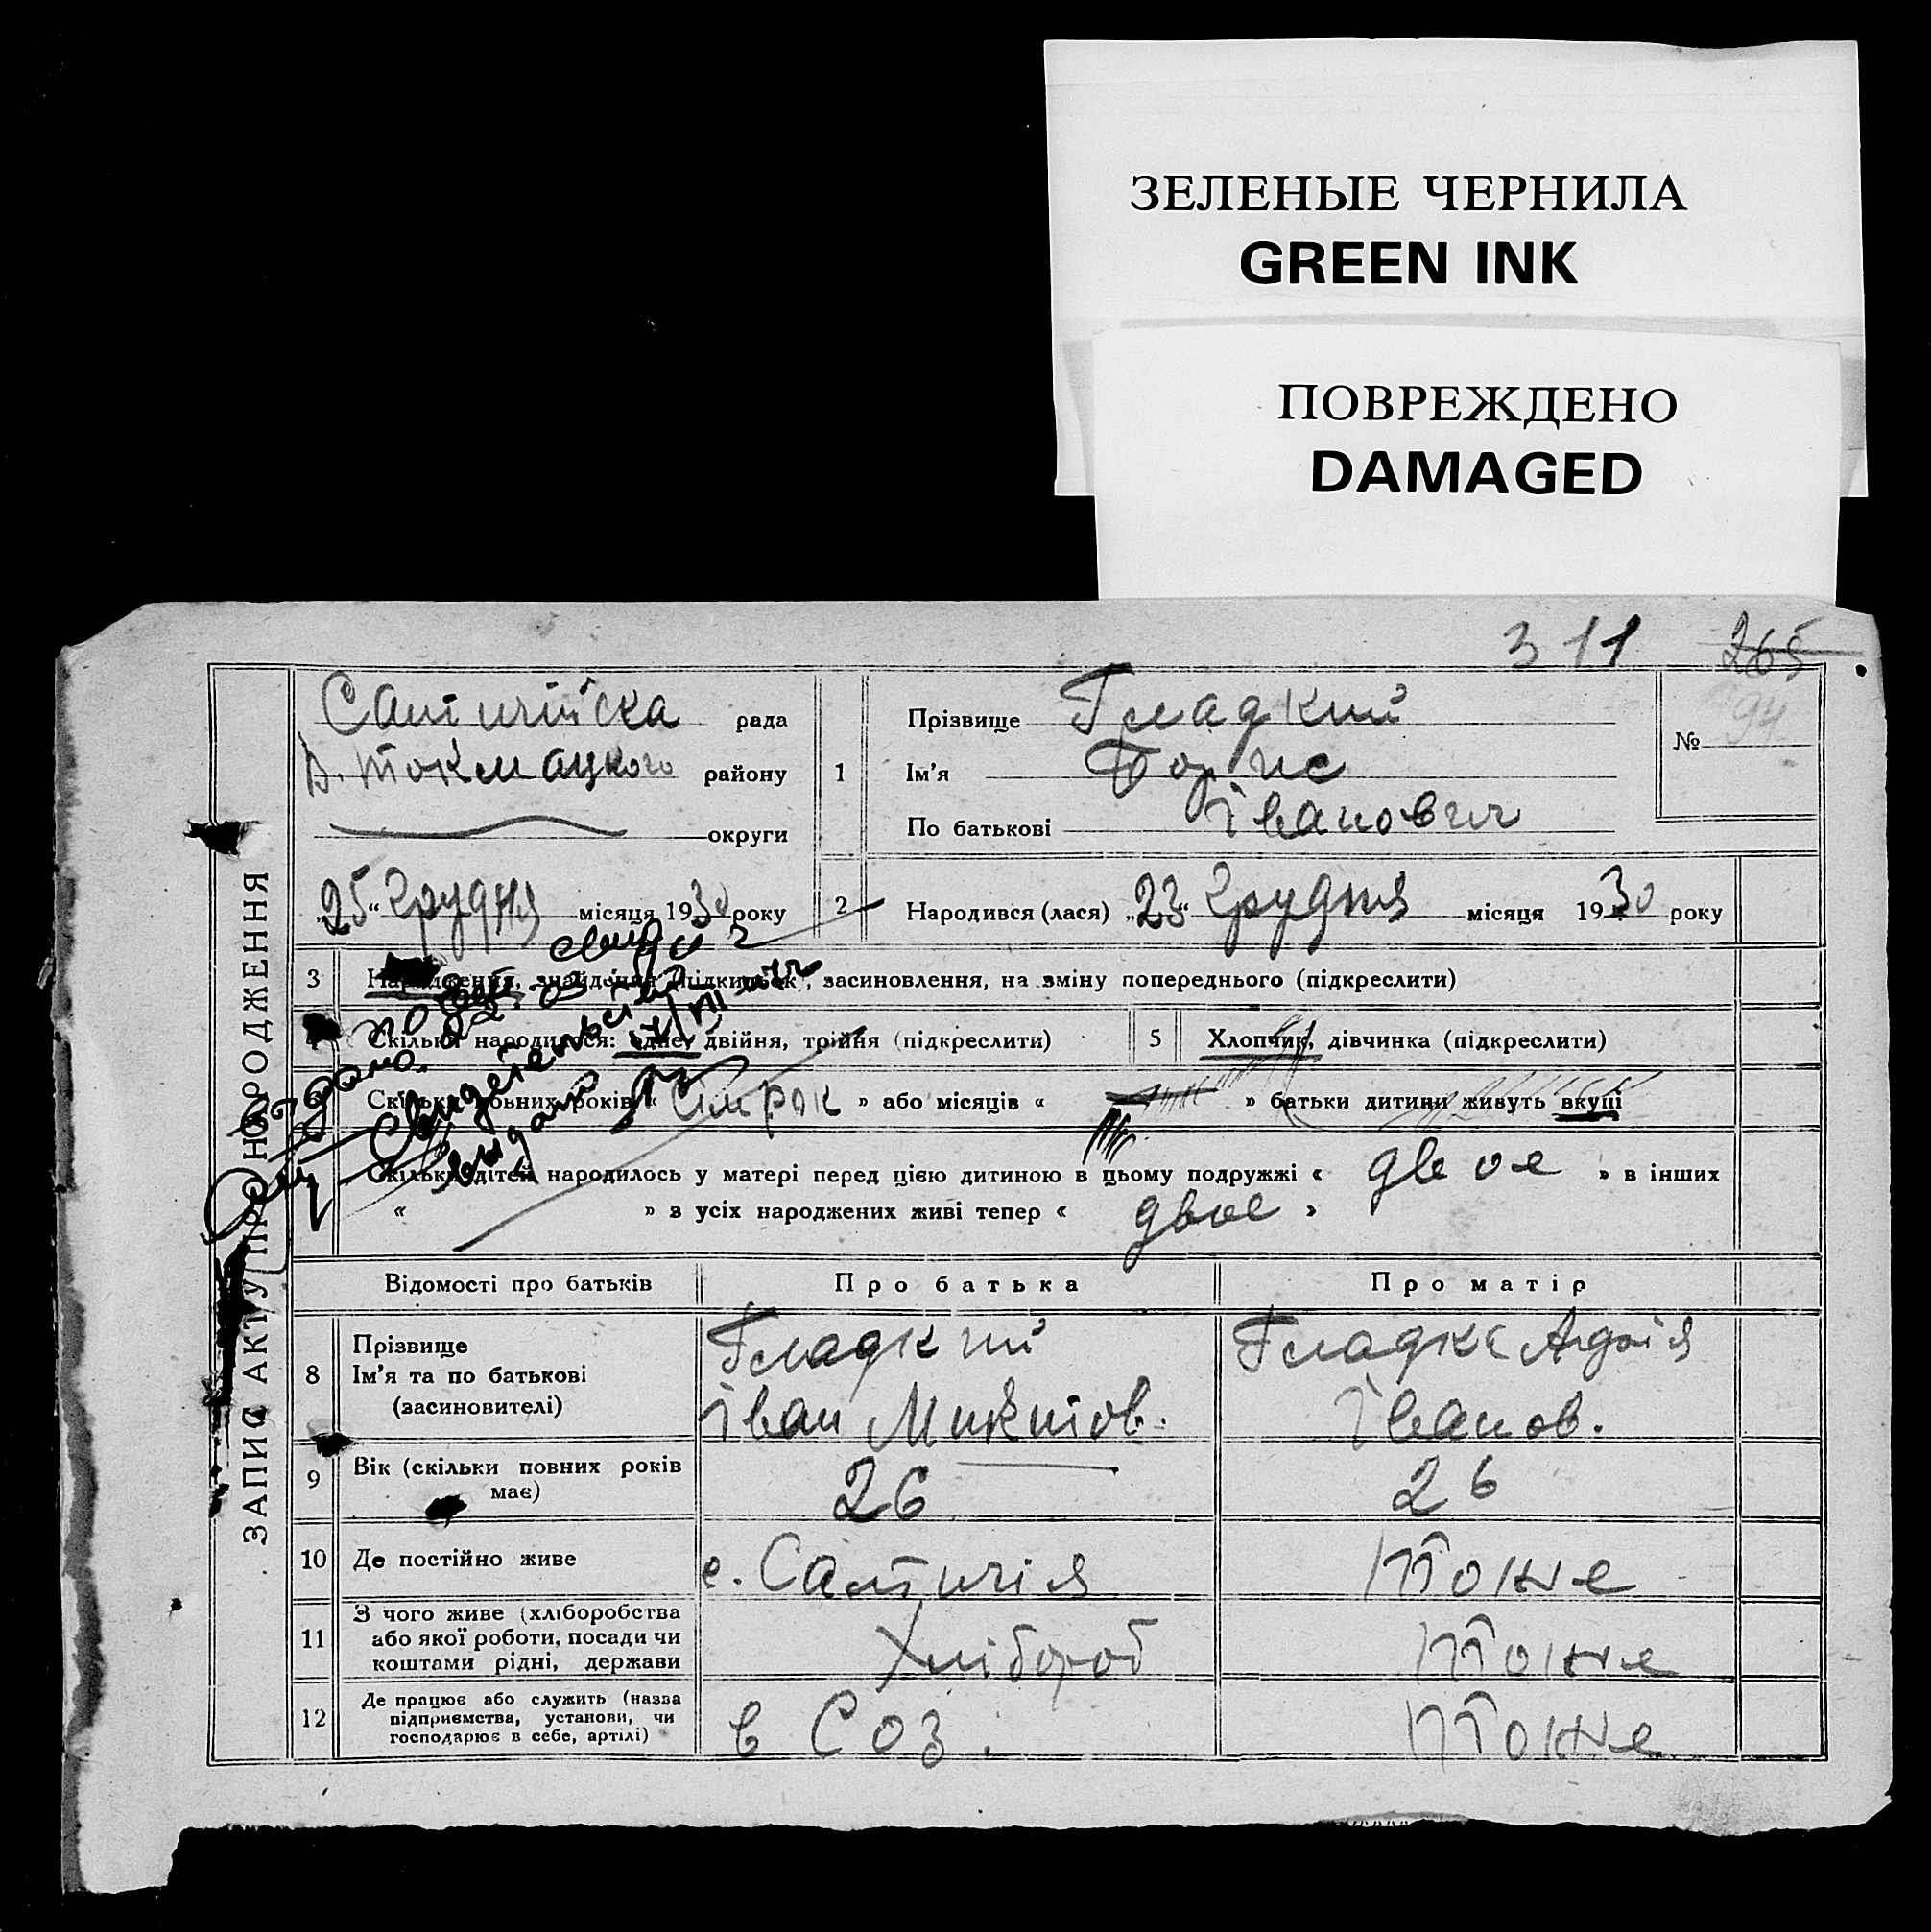 ЗЕЛЕНЫЕ ЧЕРНИЛА
GREEN INK
ПОВРЕЖДЕНО
DAMAGED
311 265
ЗАПИС АКТУ ПРО НАРОДЖЕННЯ
рада
В. Токмацкого району
округи
„25“ грудня місяця 1930 року
1 Прізвище Гладкий
Ім'я Борис
По батькові Іванович
№ 94
2 Народився (лася) „23“ грудня місяця 1930 року
3 Народження, знайдення „підкидьок“, засиновлення, на зміну попереднього (підкреслити)
Скільки народилося: одне, двійня, трійня (підкреслити)
5 Хлопчик, дівчинка (підкреслити)
Скільки повних років « » або місяців « » батьки дитини живуть вкупі
Скільки дітей народилось у матері перед цією дитиною в цьому подружжі « двое » в інших
« » з усіх народжених живі тепер « двое »
Відомості про батьків Про батька Про матір
8 Прізвище
Ім'я та по батькові
(засиновителі)
Гладкий
Іван Микитов.
Гладка
Іванов.
9 Вік (скільки повних років
має)
26 26
10 Де постійно живе с. тоже
11 З чого живе (хліборобства
або якої роботи, посади чи
коштами рідні, держави
Хлібороб тоже
12 Де працює або служить (назва
підприємства, установи, чи
господарює в себе, артілі)
в Соз. тоже